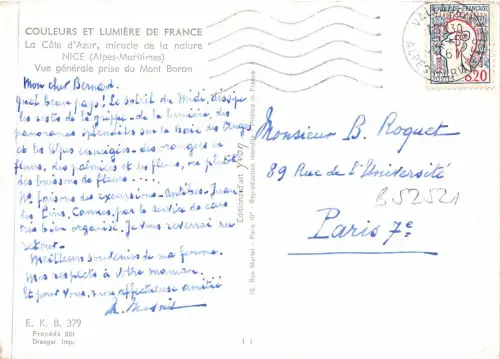 COULEURS ET LUMIÈRE DE FRANCE
La Côte d'Azur, miracle de la nature
NICE (Alpes-Maritimes)
Vue générale prise du Mont Boron
Mon cher Bernard.
Quel beau pays! Le soleil du Midi, dissipe
les restes de la grippe - de la lumière, des
panoramas splendides sur la Baie des Anges
et les Alpes enneigées - des en
fleurs, des palmiers et des fleurs, ou plutôt
des buissons de fleurs....
Ns faisons des excursions - Antibes - Juan
les Pins, Cannes, par le service de cars
très bien organisé. Je vous reverrai au
retour -
Meilleurs souvenirs de ma femme.
Mes respects à votre maman.
Et pour vous, mon affectueuse amitié
E. K. B. 379
Procédé 301
Draeger, Imp.
Editions d'art Yvon
15, Rue Martel - Paris 10e - Reproduction interdite
RÉPUBLIQUE FRANÇAISE
0,20
ALPES MAR
Monsieur B. Roquet
89 Rue de l'Université
B52521
Paris 7e